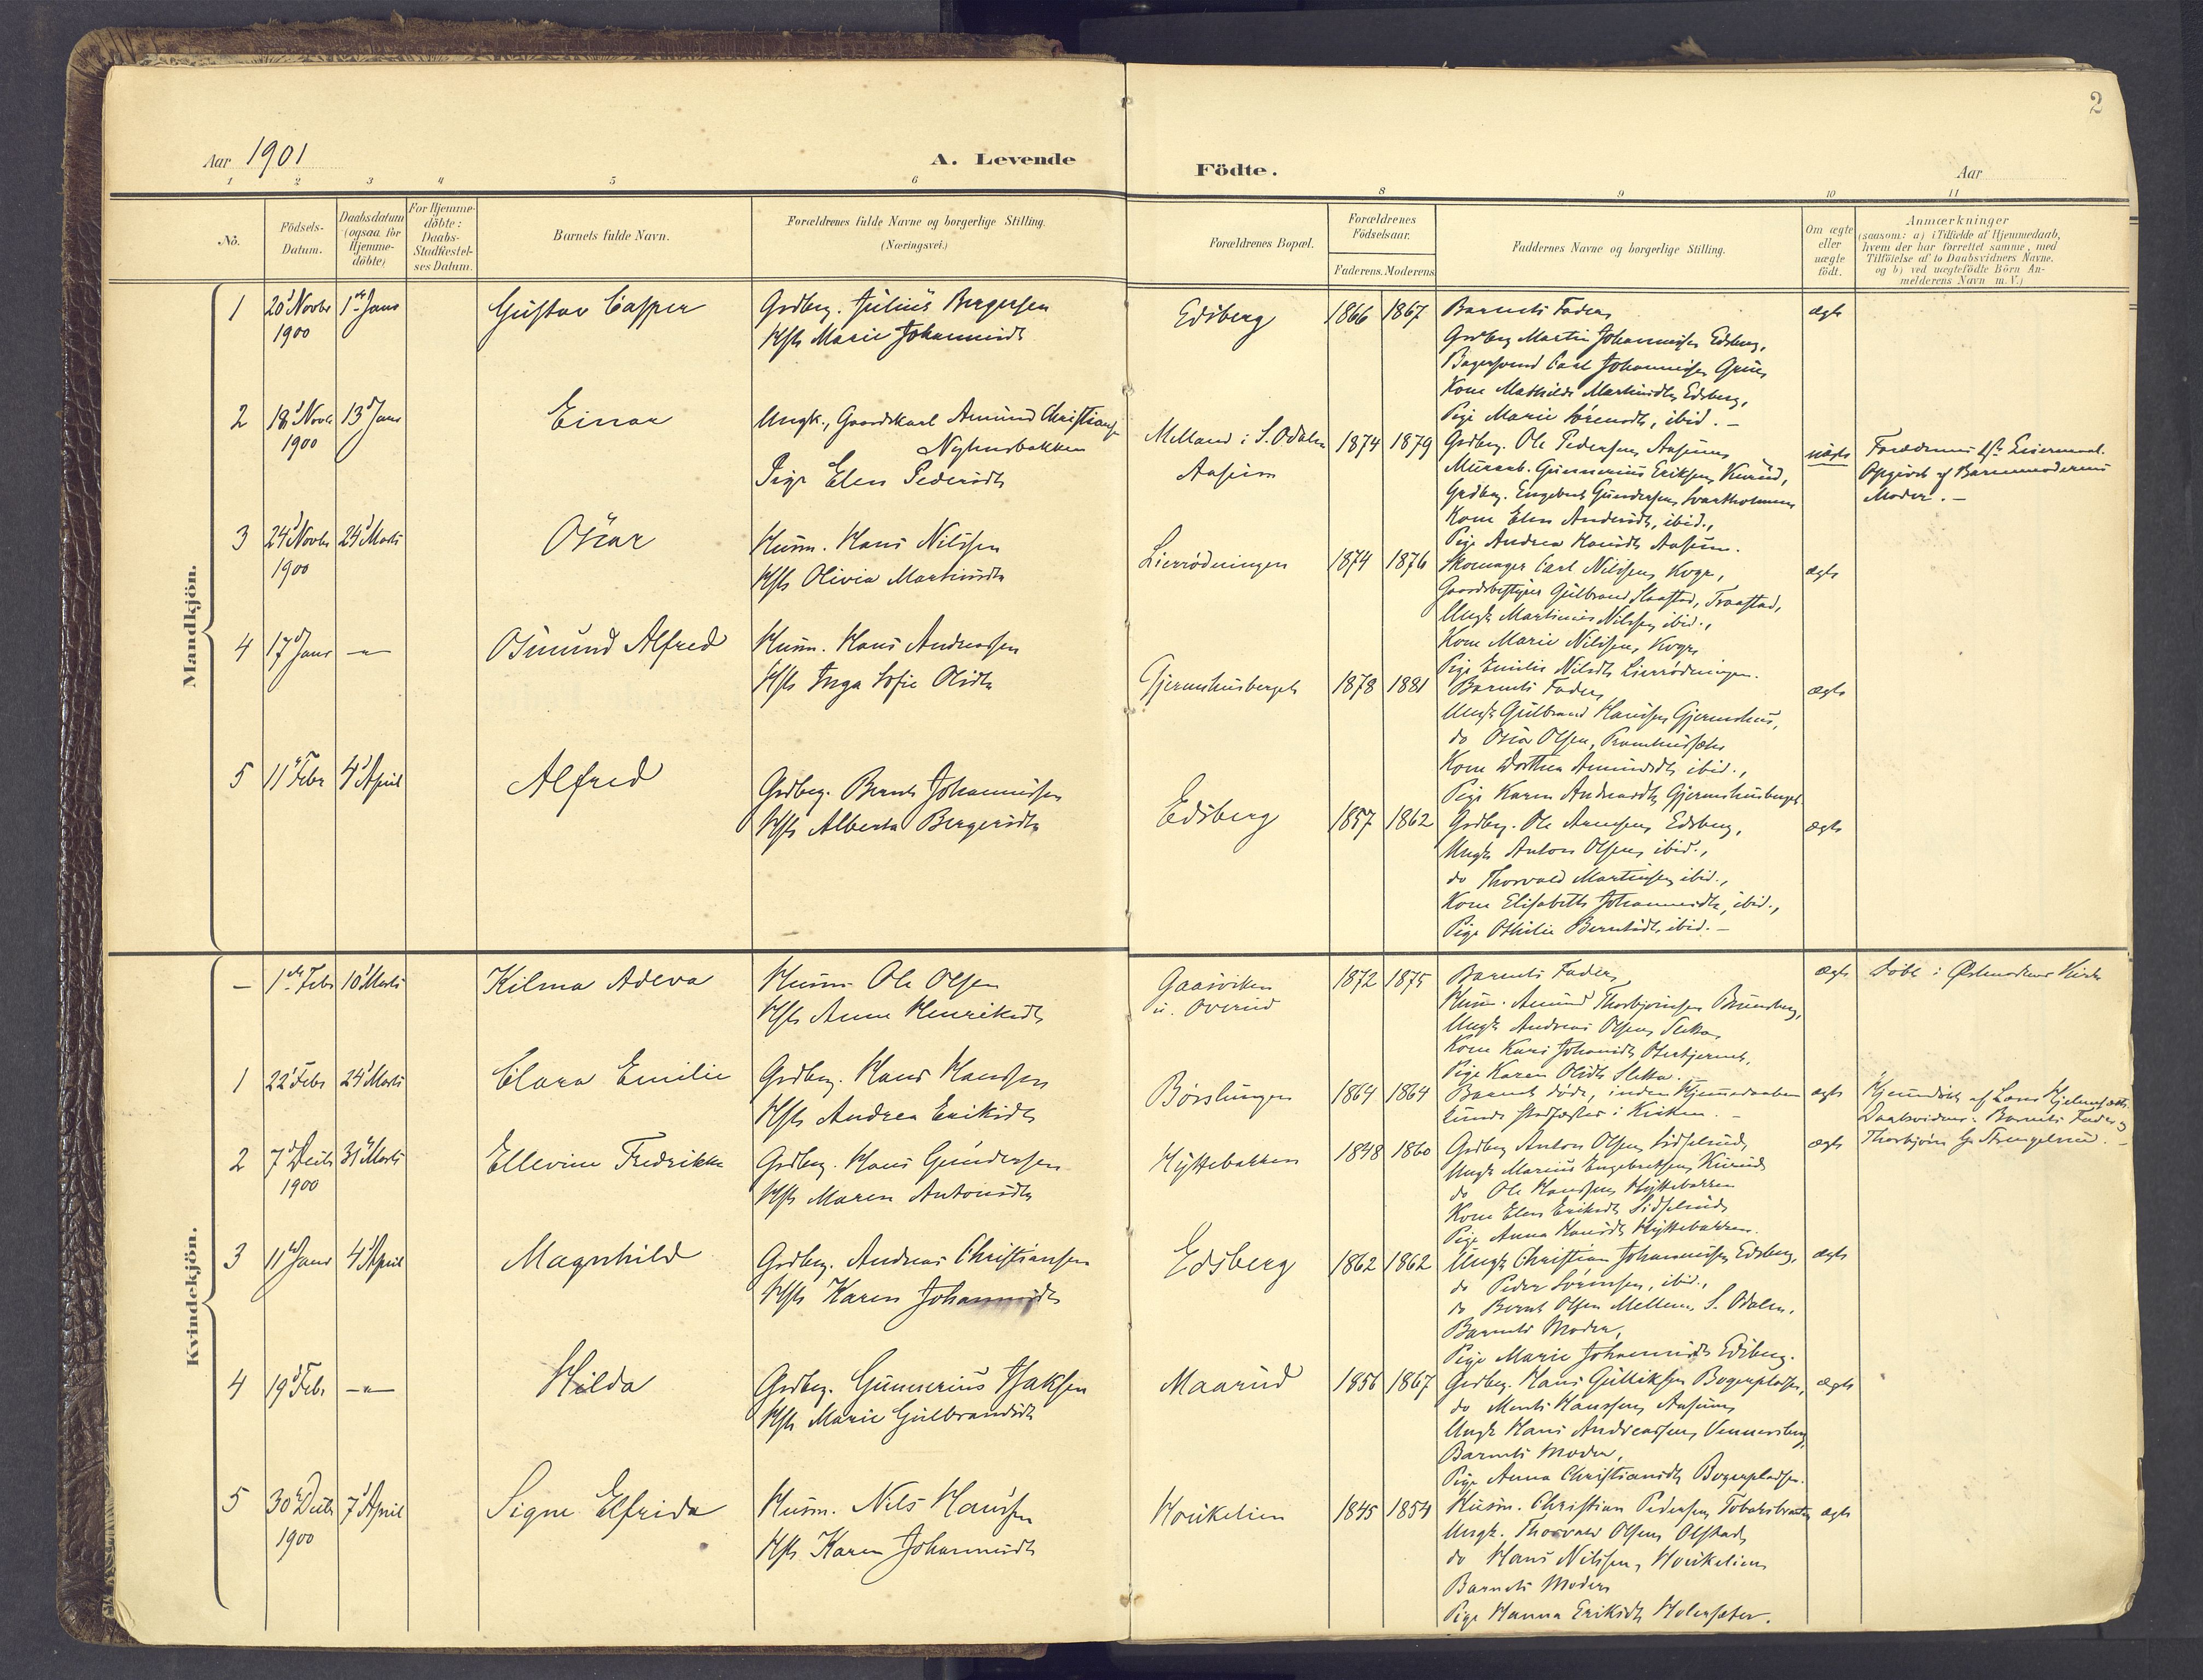 2
Aar 1901
A. Levende
Födte.
Aar
1 2 3 4 5 6 8 9 10 11
No.
Födsels-Datum.
Daabsdatum (ogsaa for Hjemme-döbte)
For Hjemme-döbte: Daabs-Stadfæstel-ses Datum.
Barnets fulde Navn.
Forældrenes fulde Navne og borgerlige Stilling.
(Næringsvei.)
Forældrenes Bopæl.
Forældrenes Födselsaar.
Faderens. Moderens
Faddernes Navne og borgerlige Stilling.
Om ægte eller uægte födt.
Anmærkninger
(saasom: a) i Tilfælde af Hjemmedaab,
hvem der har forrettet samme, med
Tilföielse af to Daabsvidners Navne.
og b) ved uægtefödte Börn An-
melderens Navn m. V.)
Mandkjön.
1 20d Novbr 1900 1ste Janr Gustav Casper
Grdbrg. Julius Bergersen
Hstr Marie Johannesdtr
Edsberg 1866 1867
Barnets Fader,
Grdbrg Martin Johannessen Edsberg,
Carl Johannessen
Kone Mathilde Edsberg,
Pige Marie Sörensdtr, ibid. -
ægte
2 18d Novbr 1900 13d Janr Einar
Ungk., Gaardskarl Amund Christians
Nyhusbakken
Pige Elen Pedersdtr
Melland i S. Odalen
Aaseim
1874 1879
Grdbrg. Ole Pedersen, Aaseim
Murarb. Gunnerius Eriksen Kurud,
Grdbrg. Engebret Gundersen
Kone Elen Andersdtr, ibid.,
Pige Andrea Hansdtr Aaseim.
uægte
Forældrenes 1ste Leiermaal.
Opgivet af Barnemoderens
Moder. -
3 24d Novbr 1900 24d Marts Oscar
Husm. Hans Nilssen
Hstr Olivia Martinsdtr
Lierrödningen 1874 1876
Skomager Carl Nilssen,
Gaardsbestyrer Gulbrand
Ungk Martinius Nilssen ibid.,
Kone Marie Nilssen,
Pige Emilie Nilsdtr Lierrödningen.
ægte
4 17d Janr -"- Osmund Alfred
Husm. Hans Andreassen
Hstr Inga Sofie Olsdtr
Gjermshusberget 1878 1881
Barnets Fader,
Ungk Gulbrand Hanssen Gjermshus,
do Oscar Olsen,
Kone Dorthea Amundsdtr ibid.,
Pige Karen Andreasdtr Gjermshusberget.
ægte
5 11te Febr 4d April Alfred
Grdbrg. Bernt Johannessen
Hstr Alberta Bergersdtr
Edsberg 1857 1862
Grdbrg. Ole Edsberg,
Ungk Anton Olsen, ibid.,
do Thorvald Martinsen, ibid.,
Kone Elisabeth Johannesdtr, ibid.,
Pige Othilie Berntsdtr, ibid. -
ægte
Kvindekjön.
- 1ste Febr 10d Marts Kilma Adeva
Husm. Ole Olsen
Hstr Anne Henriksdtr
Gaasviken
u. Overud
1872 1875
Barnets Fader,
Husm. Amund Thorbjörnsen
Ungk Andreas Olsen, Sletta,
Kone Kari Johansdtr
Pige Karen Olsdtr Sletta.
ægte
Döbt i Kirke
1 22d Febr 24d Marts Clara Emilie
Grdbrg. Hans Hanssen
Hstr Andrea Eriksdtr
Börslungen 1864 1864
Barnet döde, inden Hjemmedaaben
kunde stadfæstes i Kirken. -
ægte
Hjemmedöbt af Lars
Daabsvidner: Barnets Fader og
Thorbjörn
2 7d Decbr 1900 31te Marts Ellevine Fredrikke
Grdbrg. Hans Gundersen
Hstr Maren Antonsdtr
Hyttebakken 1848 1860
Grdbrg Anton Olsen Sidselrud,
Ungk Marius Engebretsen, Kurud
do Ole Hanssen, Hyttebakken
Kone Elen Eriksdtr Sidselrud,
Pige Anna Hansdtr Hyttebakken.
ægte
3 11te Janr 4d April Magnhild
Grdbrg. Andreas Christiansen
Hstr Karen Johannesdtr
Edsberg 1862 1862
Ungk Christian Johannessen Edsberg,
do Peder Sörensen, ibid.,
do Bernt Olsen Mellem, S. Odalen,
Barnets Moder,
Pige Marie Johannesdtr Edsberg.
ægte
4 19d Febr -"- Hilda
Grdbrg. Gunnerius Isaksen
Hstr Marie Gulbrandsdtr
Maarud 1856 1867
Grdbrg. Hans Gulliksen
do Hanssen, Aaseim
Ungk Hans Andreassen,
Barnets Moder,
Pige Anna Christiansdtr
ægte
5 30te Decbr 1900 7d April Signe Elfrida
Husm. Nils Hanssen
Hstr Karen Johannesdtr
Houkelien 1845 1854
Husm. Christian Pedersen
Ungk. Thorvald Olsen, Olstad,
do Hans Nilssen, Houkelien
Barnets Moder,
Pige Hanna Eriksdtr Holersæter.
ægte